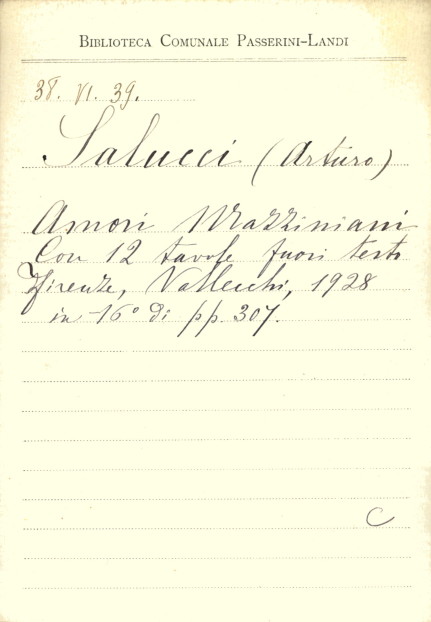 BIBLIOTECA COMUNALE PASSERINI-LANDI
38. VI. 39.
Salucci (Arturo)
Amori Mazziniani
Con 12 tavole fuori testo
Firenze, Vallecchi, 1928
in 16° di pp. 307.
C